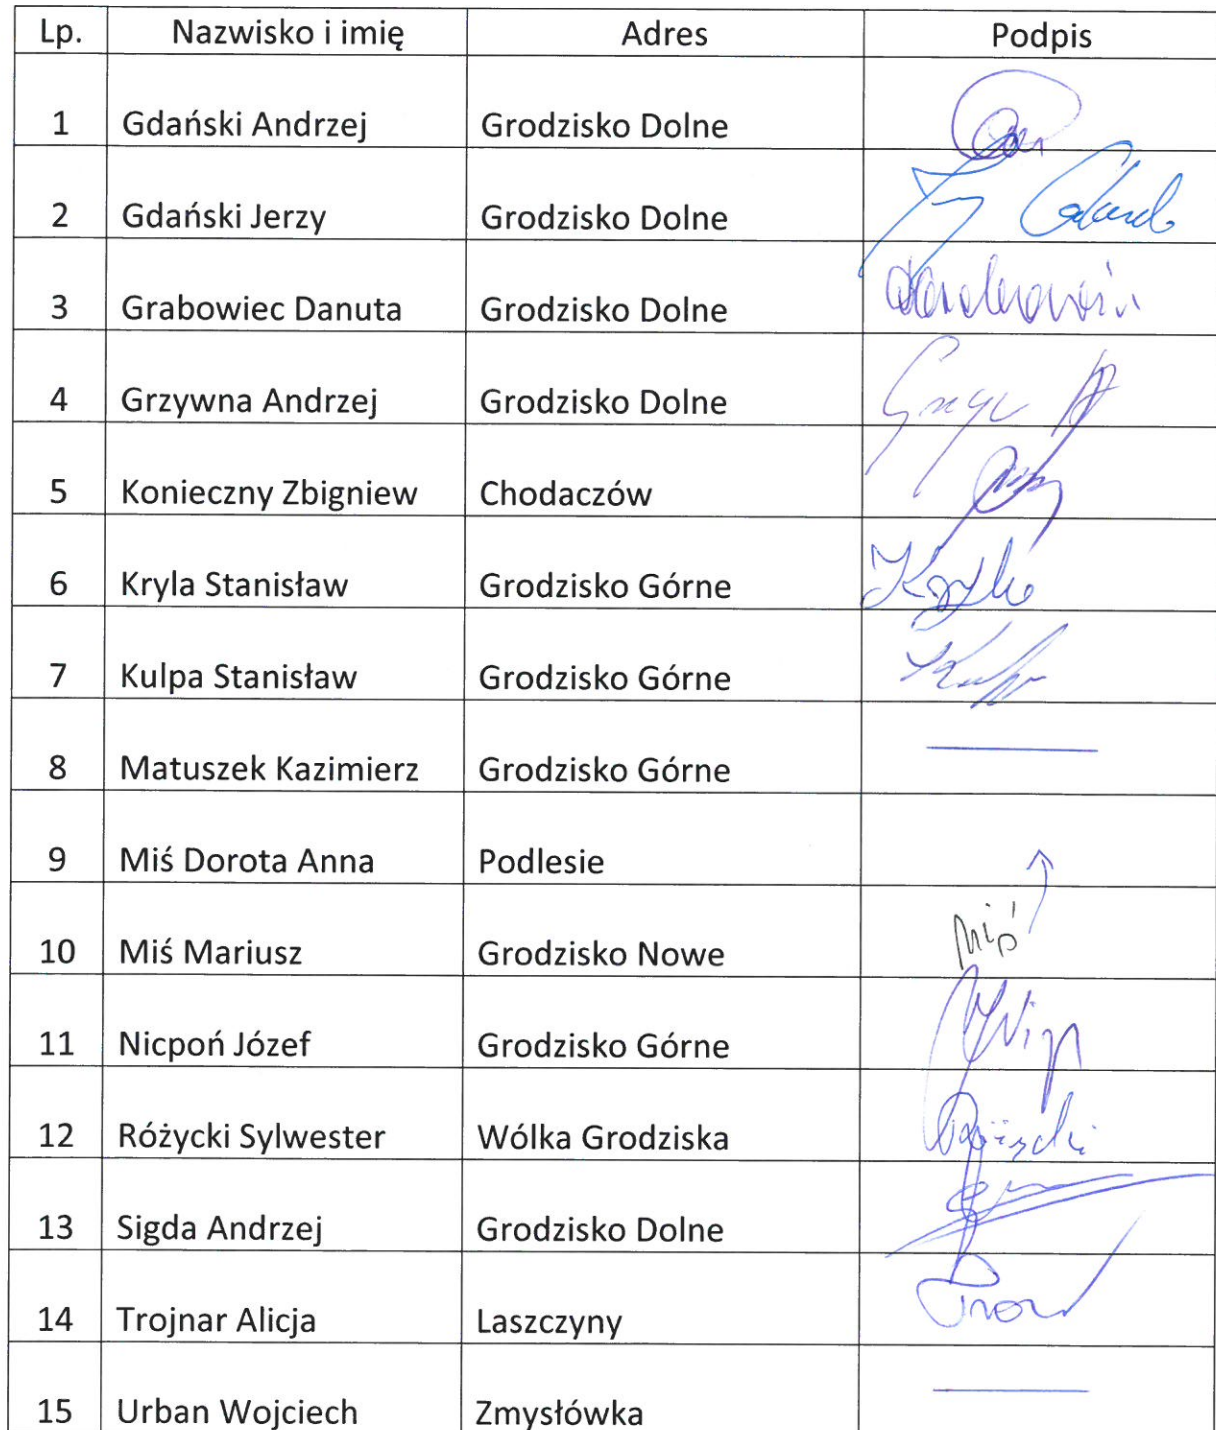 Lp. Nazwisko i imię Adres Podpis
1 Gdański Andrzej Grodzisko Dolne
2 Gdański Jerzy Grodzisko Dolne
3 Grabowiec Danuta Grodzisko Dolne
4 Grzywna Andrzej Grodzisko Dolne
5 Konieczny Zbigniew Chodaczów
6 Kryla Stanisław Grodzisko Górne
7 Kulpa Stanisław Grodzisko Górne
8 Matuszek Kazimierz Grodzisko Górne
9 Miś Dorota Anna Podlesie
10 Miś Mariusz Grodzisko Nowe Miś
11 Nicpoń Józef Grodzisko Górne
12 Różycki Sylwester Wólka Grodziska
13 Sigda Andrzej Grodzisko Dolne
14 Trojnar Alicja Laszczyny
15 Urban Wojciech Zmysłówka